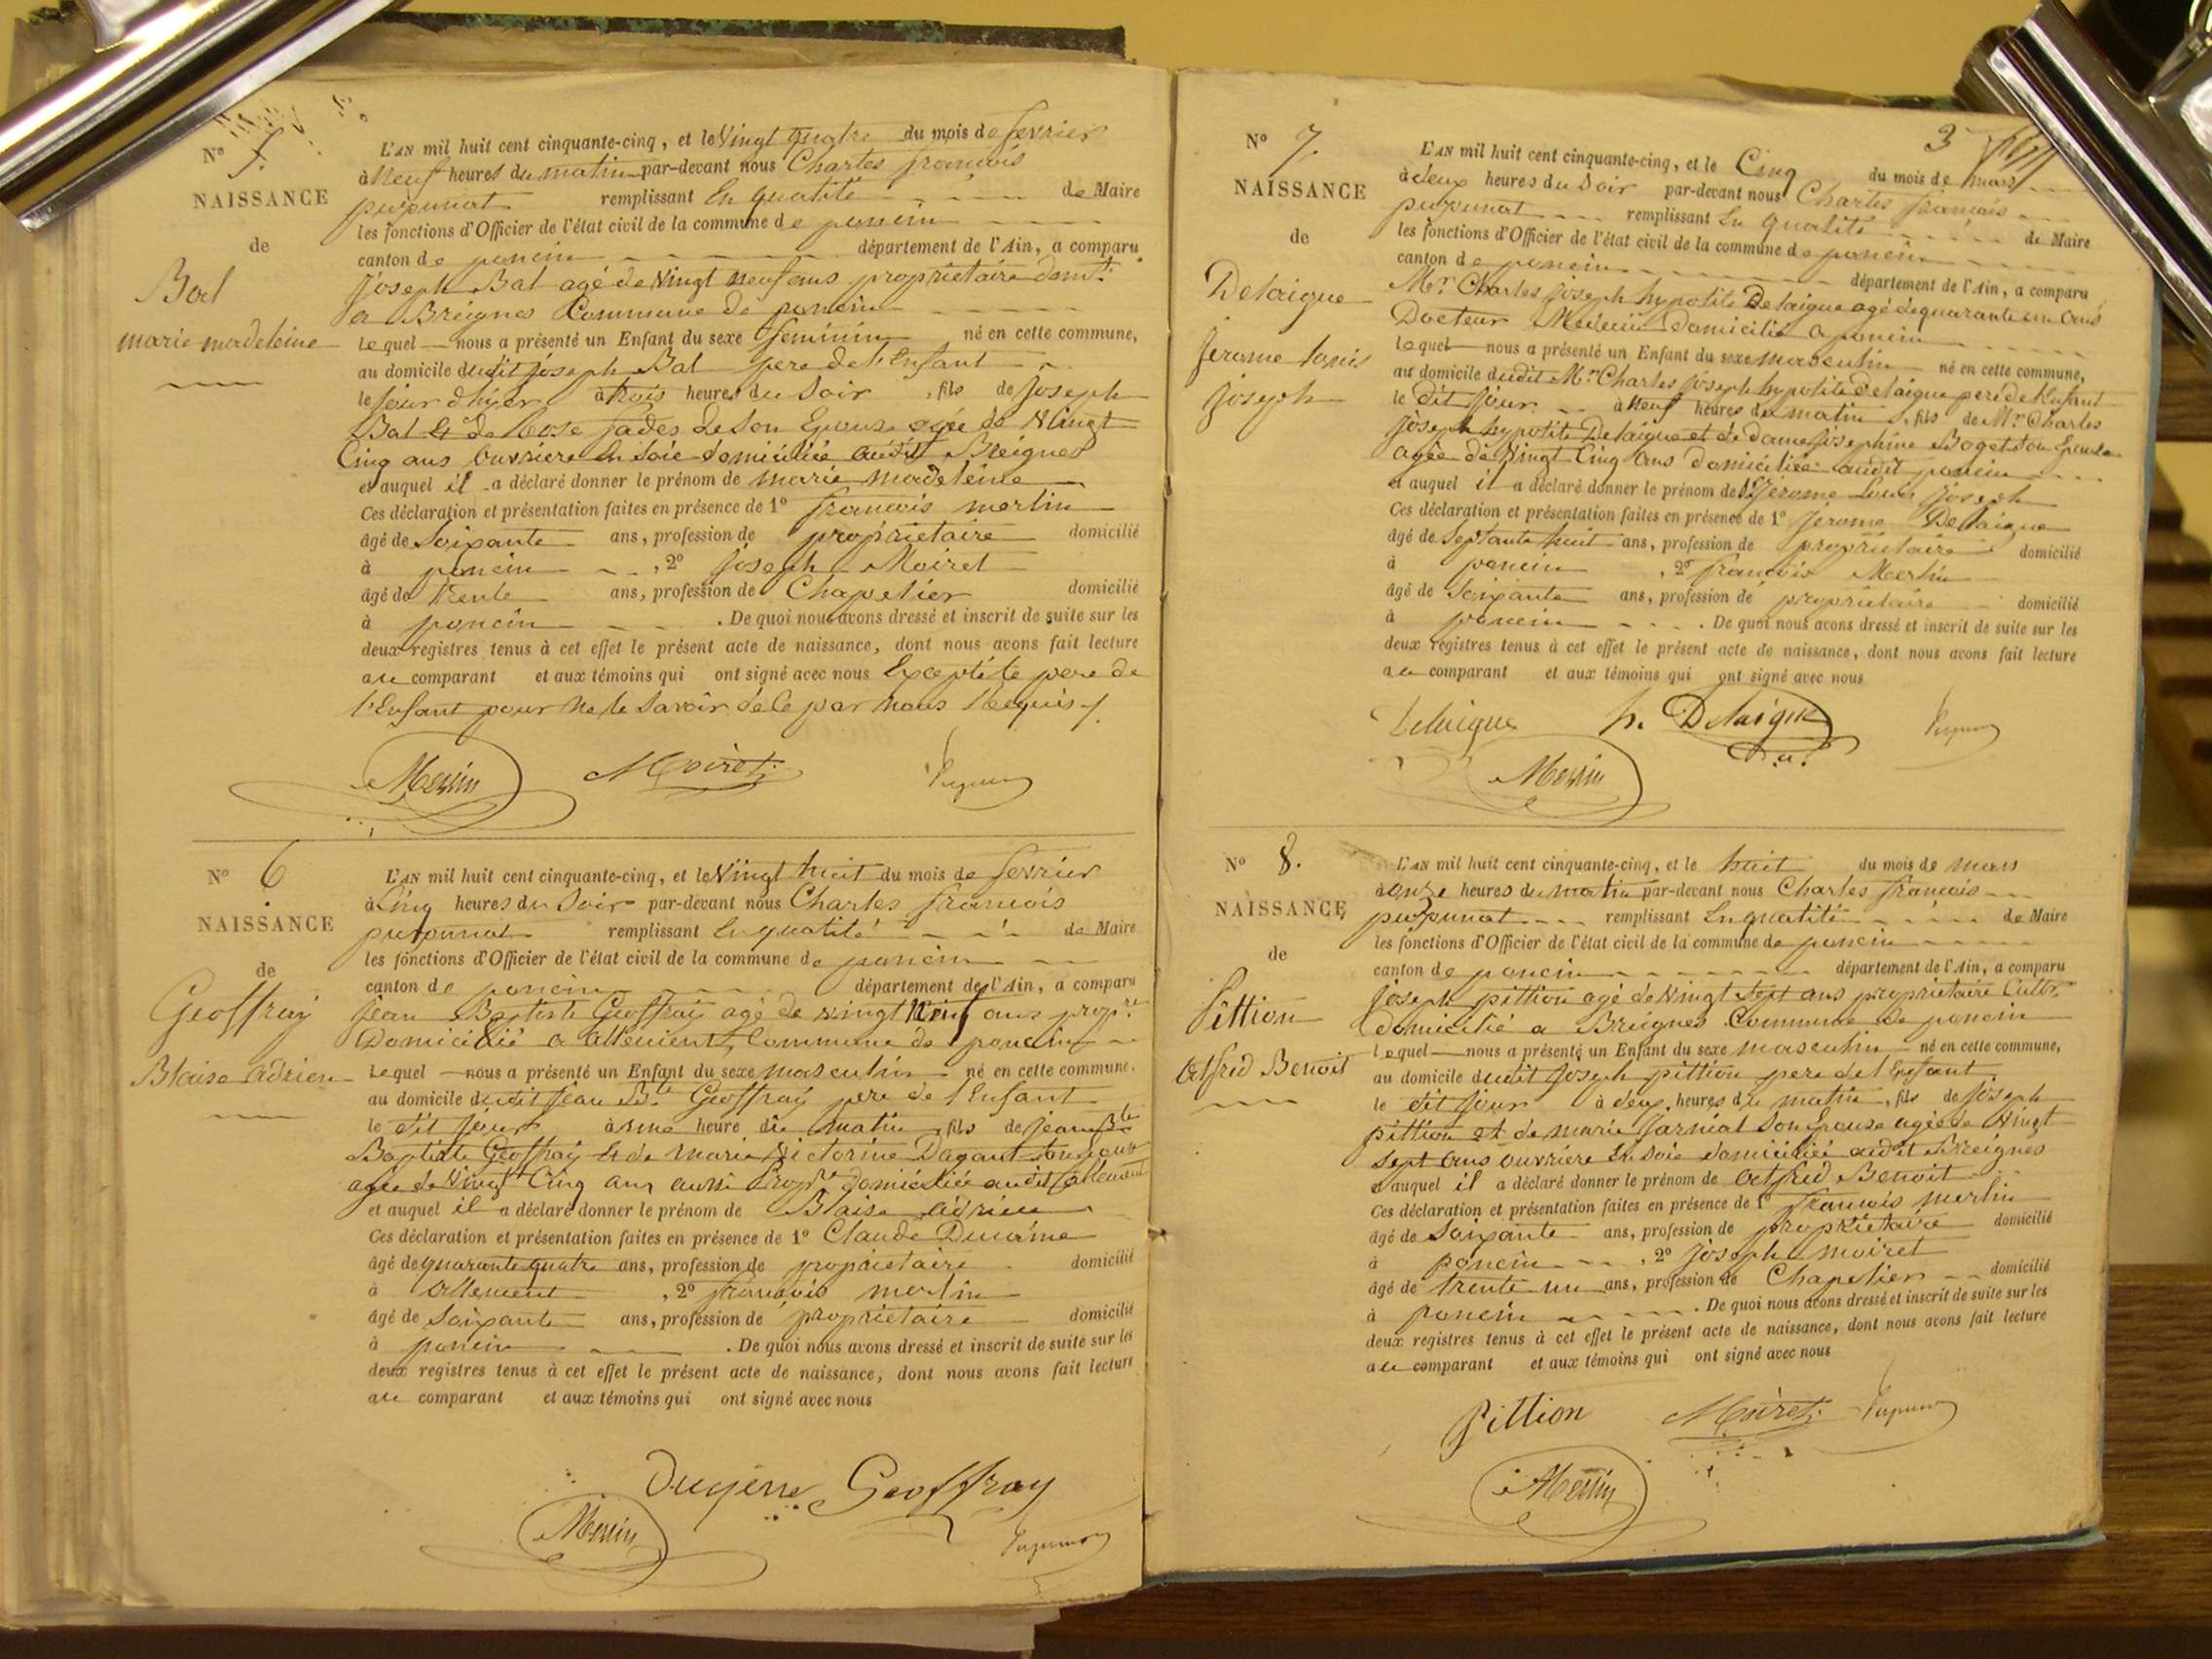 N° 5.
NAISSANCE
de
Bal
marie madeleine
L'AN mil huit cent cinquante-cinq, et le Vingt quatre du mois de fevrier
à Neuf heures du matin par-devant nous Charles francois
puvpunat remplissant En qualité de Maire
les fonctions d'Officier de l'état civil de la commune de poncin
canton de poncin département de l'Ain, a comparu
Joseph Bal agé de Vingt neuf ans proprietaire domt.
a Breignes Commune de poncin
Lequel nous a présenté un Enfant du sexe feminin né en cette commune,
au domicile dudit joseph Bal pere de l'Enfant
le jour d'hyer à trois heures du Soir, fils de Joseph
Bal et de Rose fades de Son Epouse agée de Vingt
Cinq ans Ouvriere En Soie domiciliée audit Breignes
et auquel il a déclaré donner le prénom de marie madeleine
Ces déclaration et présentation faites en présence de 1° francois merlin
âgé de Soixante ans, profession de propriétaire domicilié
à poncin , 2° Joseph Moiret
âgé de trente ans, profession de Chapelier domicilié
à poncin . De quoi nous avons dressé et inscrit de suite sur les
deux registres tenus à cet effet le présent acte de naissance, dont nous avons fait lecture
au comparant et aux témoins qui ont signé avec nous Excepté le pere de
l'Enfant pour ne le Savoir de ce par nous Requis
Merlin Moiret
N° 6
NAISSANCE
de
Geoffray
Blaise adrien
L'AN mil huit cent cinquante-cinq, et le Vingt huit du mois de fevrier
à Cinq heures du Soir par-devant nous Charles francois
puvpunat remplissant En qualité de Maire
les fonctions d'Officier de l'état civil de la commune de poncin
canton de poncin département de l'Ain, a comparu
Jean Baptiste Geoffray agé de vingt neuf ans propre
Domicilié a allement, Commune de poncin
Lequel nous a présenté un Enfant du sexe masculin né en cette commune,
au domicile dudit Jean Bte Geoffray pere de l'Enfant
le dit jour à une heure du matin, fils de jean
Baptiste Geoffray et de marie Victorine Dagant
agée de Vingt Cinq ans aussi Propre domiciliée audit allement
et auquel il a déclaré donner le prénom de Blaise adrien
Ces déclaration et présentation faites en présence de 1° Claude
âgé de quarante quatre ans, profession de propriétaire domicilié
à allement , 2° francois merlin
âgé de Soixante ans, profession de propriétaire domicilié
à poncin . De quoi nous avons dressé et inscrit de suite sur les
deux registres tenus à cet effet le présent acte de naissance, dont nous avons fait lecture
au comparant et aux témoins qui ont signé avec nous
Geoffray
Merlin
3
N° 7.
NAISSANCE
de
Delaigue
Jerome Louis
Joseph
L'AN mil huit cent cinquante-cinq, et le Cinq du mois de mars
à deux heures du Soir par-devant nous Charles francois
puvpunat remplissant En qualité de Maire
les fonctions d'Officier de l'état civil de la commune de poncin
canton de poncin département de l'Ain, a comparu
Mr. Charles Joseph hypolite Delaigue agé de quarante un ans
Docteur Medecin domicilié a poncin
lequel nous a présenté un Enfant du sexe masculin né en cette commune,
au domicile dudit Mr. Charles Joseph hypolite Delaigue pere de l'Enfant
le dit jour à Neuf heures du matin, fils de Mr Charles
Joseph hypolite Delaigue et de dame Josephine Boget Son Epouse
agée de Vingt Cinq ans domiciliée audit poncin
et auquel il a déclaré donner le prénom de Jérome Louis Joseph
Ces déclaration et présentation faites en présence de 1° Jerome Delaigue
âgé de Septante huit ans, profession de propriétaire domicilié
à poncin , 2° francois Merlin
âgé de Soixante ans, profession de propriétaire domicilié
à poncin . De quoi nous avons dressé et inscrit de suite sur les
deux registres tenus à cet effet le présent acte de naissance, dont nous avons fait lecture
au comparant et aux témoins qui ont signé avec nous
Delaigue h. Delaigue
Merlin
N° 8.
NAISSANCE
de
Pittion
alfred Benoit
L'AN mil huit cent cinquante-cinq, et le huit du mois de mars
à onze heures du matin par-devant nous Charles francois
puvpunat remplissant En qualité de Maire
les fonctions d'Officier de l'état civil de la commune de poncin
canton de poncin département de l'Ain, a comparu
Joseph pittion agé de Vingt Sept ans propriétaire Cultr.
domicilié a Breignes Commune de poncin
lequel nous a présenté un Enfant du sexe masculin né en cette commune,
au domicile dudit Joseph pittion pere de l'Enfant
le dit jour à deux heures du matin, fils de Joseph
pittion et de marie Jarniat Son Epouse agée de Vingt
Sept ans ouvriere En Soie domiciliée audit Breignes
et auquel il a déclaré donner le prénom de alfred Benoit
Ces déclaration et présentation faites en présence de 1° francois merlin
âgé de Soixante ans, profession de propriétaire domicilié
à poncin , 2° Joseph moiret
âgé de trente un ans, profession de Chapelier domicilié
à poncin . De quoi nous avons dressé et inscrit de suite sur les
deux registres tenus à cet effet le présent acte de naissance, dont nous avons fait lecture
au comparant et aux témoins qui ont signé avec nous
Pittion Moiret
Merlin